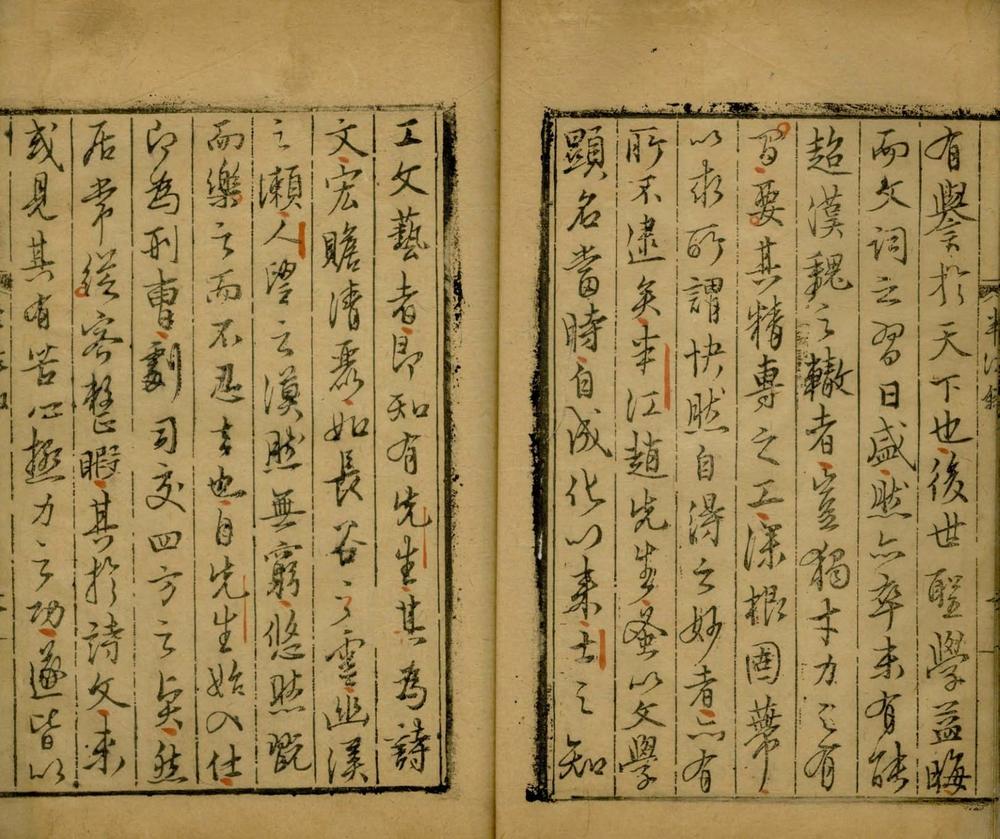 有譽於天下也後世聖學益晦
而文詞之習日盛然亦卒未有能
超漢魏之轍者豈獨才力之有
要其精專之工深根固蒂
以求所謂快然自得之妙者亦有
所不逮矣半江趙先生蚤以文學
顯名當時自成化以來士之知
工文藝者即知有先生其為詩
文宏贍清麗如長谷之雲幽溪
之瀨人望之漠然無窮悠然既
而樂之而不忍去也自先生始入仕
即為刑曹劇司交四方之然
居常從容整暇其於詩文未
或見其有苦心極力之功遂皆以
半江